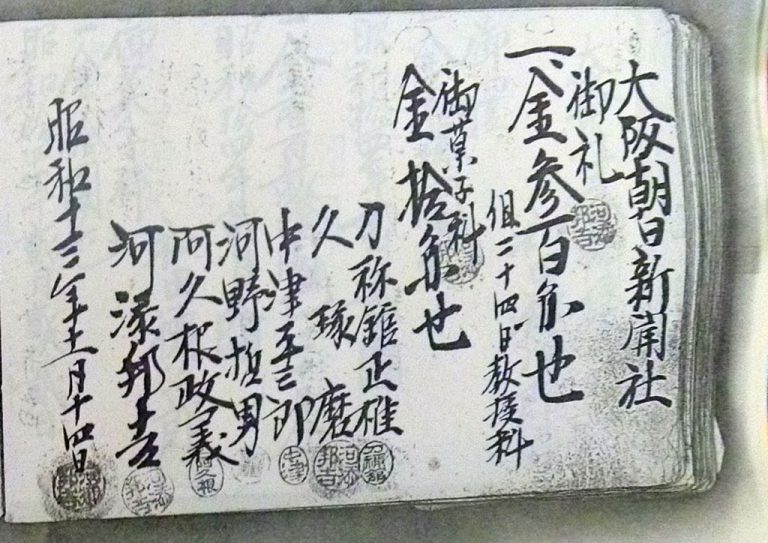 大阪朝日新聞社
御礼
一、金参百円也
但二十四日教授料
御菓子料
金拾円也
刀祢舘正雄
久琢磨
中津平三郎
河野哲男
阿久根政義
河添邦吉
昭和十三年十一月十四日
中津
阿久根